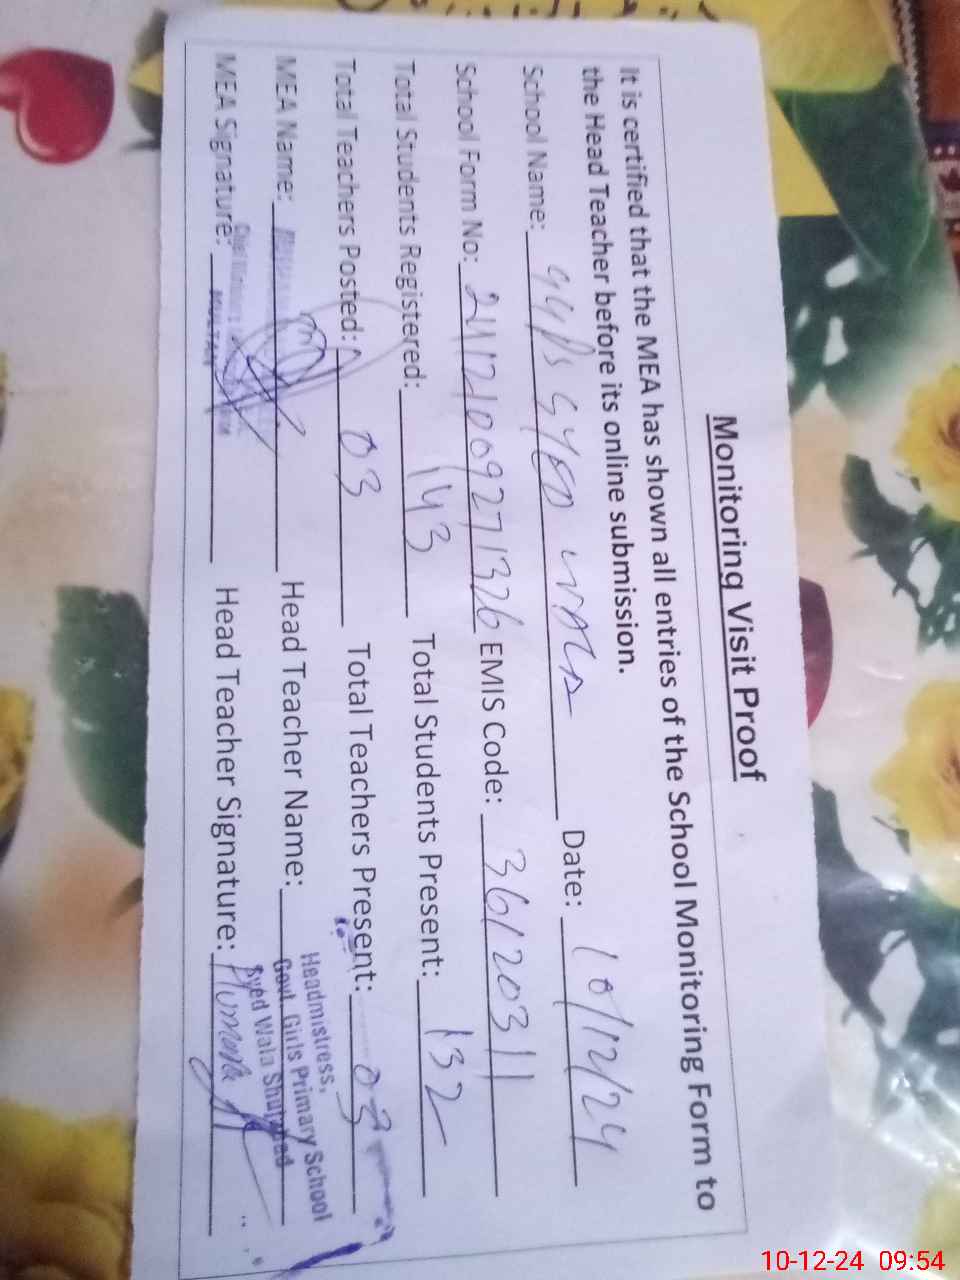 Monitoring Visit Proof
It is certified that the MEA has shown all entries of the School Monitoring Form to
the Head Teacher before its online submission.
School Name: GGPS SYED WALA Date: 10/12/24
School Form No: EMIS Code: 36120311
Total Students Registered: 143 Total Students Present: 132
Total Teachers Posted: 03 Total Teachers Present: 03
MEA Name: Head Teacher Name:
MEA Signature: Head Teacher Signature:
MULTAN
Headmistress,
Govt. Girls Primary School
Syed Wala Shujabad
10-12-24 09:54